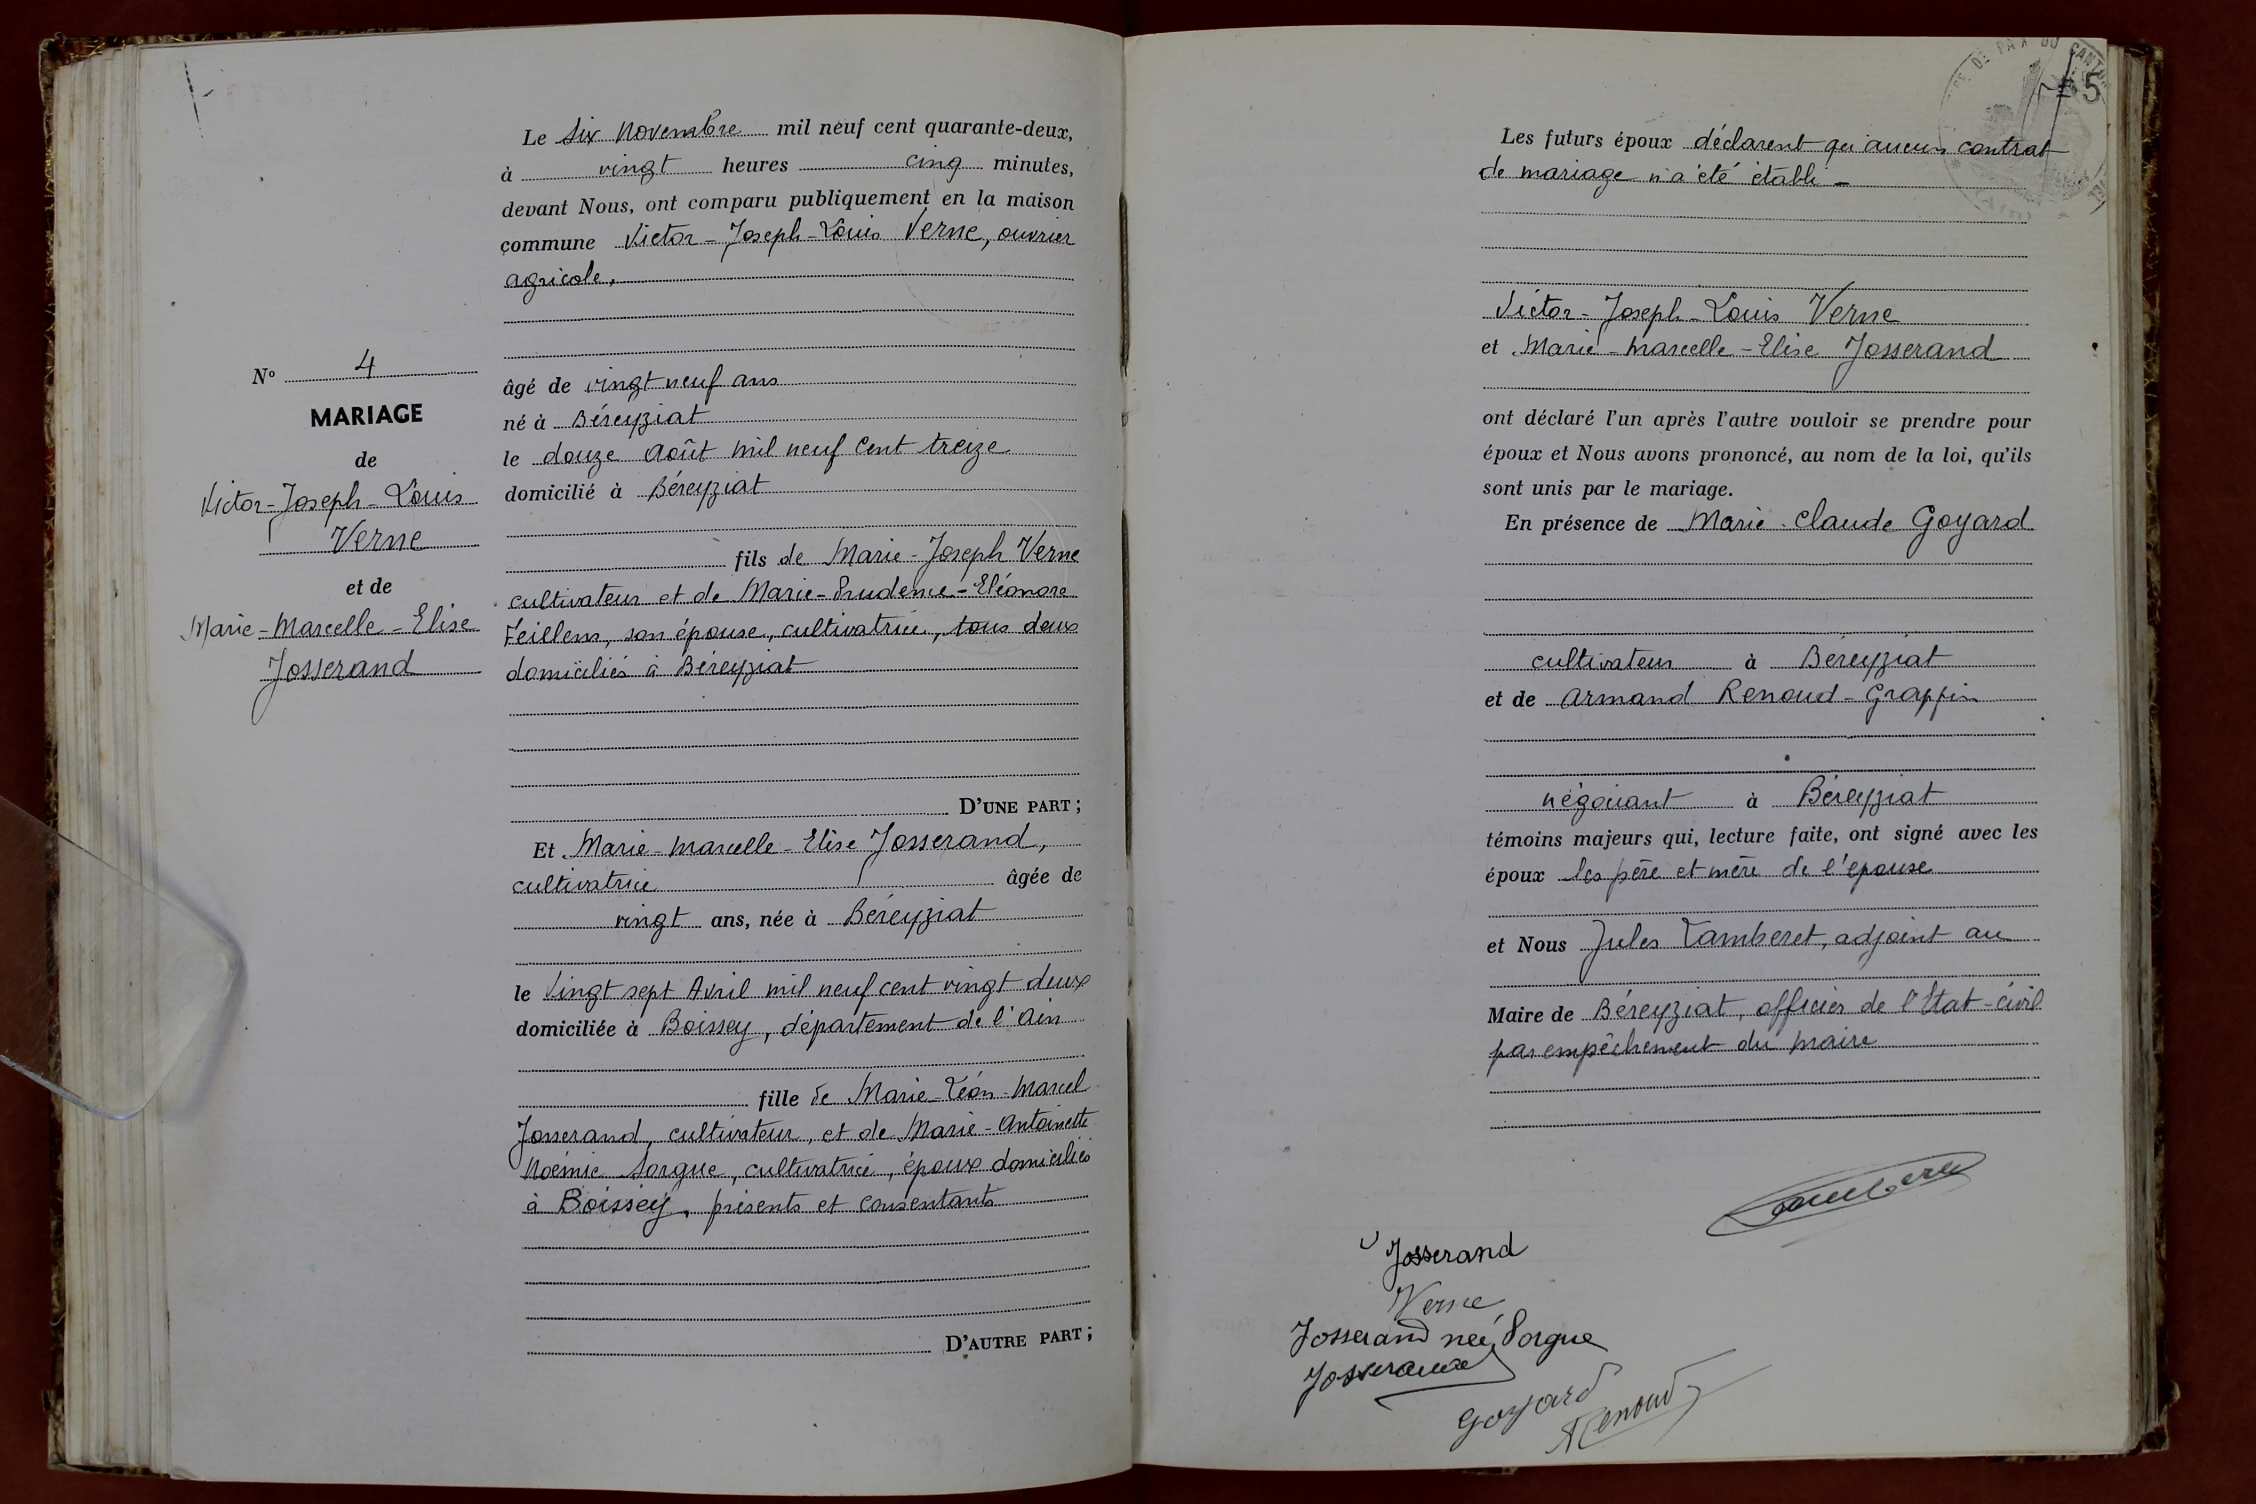 Le six Novembre mil neuf cent quarante-deux,
à vingt heures cinq minutes,
devant Nous, ont comparu publiquement en la maison
commune Victor-Joseph-Louis Verne, ouvrier
agricole,
âgé de vingt neuf ans
né à Béreyziat
le douze Août mil neuf cent treize
domicilié à Béreyziat
fils de Marie-Joseph Verne
cultivateur et de Marie-Prudence-Eléonore
Feillens, son épouse, cultivatrice, tous deux
domiciliés à Béreyziat
D'UNE PART ;
Et Marie-Marcelle-Elise Josserand,
cultivatrice âgée de
vingt ans, née à Béreyziat
le Vingt sept Avril mil neuf cent vingt deux
domiciliée à Boissey, département de l'Ain
fille de Marie-Léon-Marcel
Josserand, cultivateur, et de Marie-Antoinette
Noémie Sorgue, cultivatrice, époux domiciliés
à Boissey, présents et consentants
D'AUTRE PART ;
No 4
MARIAGE
de
Victor-Joseph-Louis
Verne
et de
Marie-Marcelle-Elise
Josserand
5
Les futurs époux déclarent qu'aucun contrat
de mariage n'a été établi -
Victor-Joseph-Louis Verne
et Marie-Marcelle-Elise Josserand
ont déclaré l'un après l'autre vouloir se prendre pour
époux et Nous avons prononcé, au nom de la loi, qu'ils
sont unis par le mariage.
En présence de Marie-Claude Goyard
cultivateur à Béreyziat
et de Armand Renoud-Grappin
négociant à Béreyziat
témoins majeurs qui, lecture faite, ont signé avec les
époux les père et mère de l'épouse
et Nous Jules Tamberet, adjoint au
Maire de Béreyziat, officier de l'Etat-civil
par empêchement du maire
Josserand
Verne
Josserand née Sorgue
Josserand
Goyard
Renoud